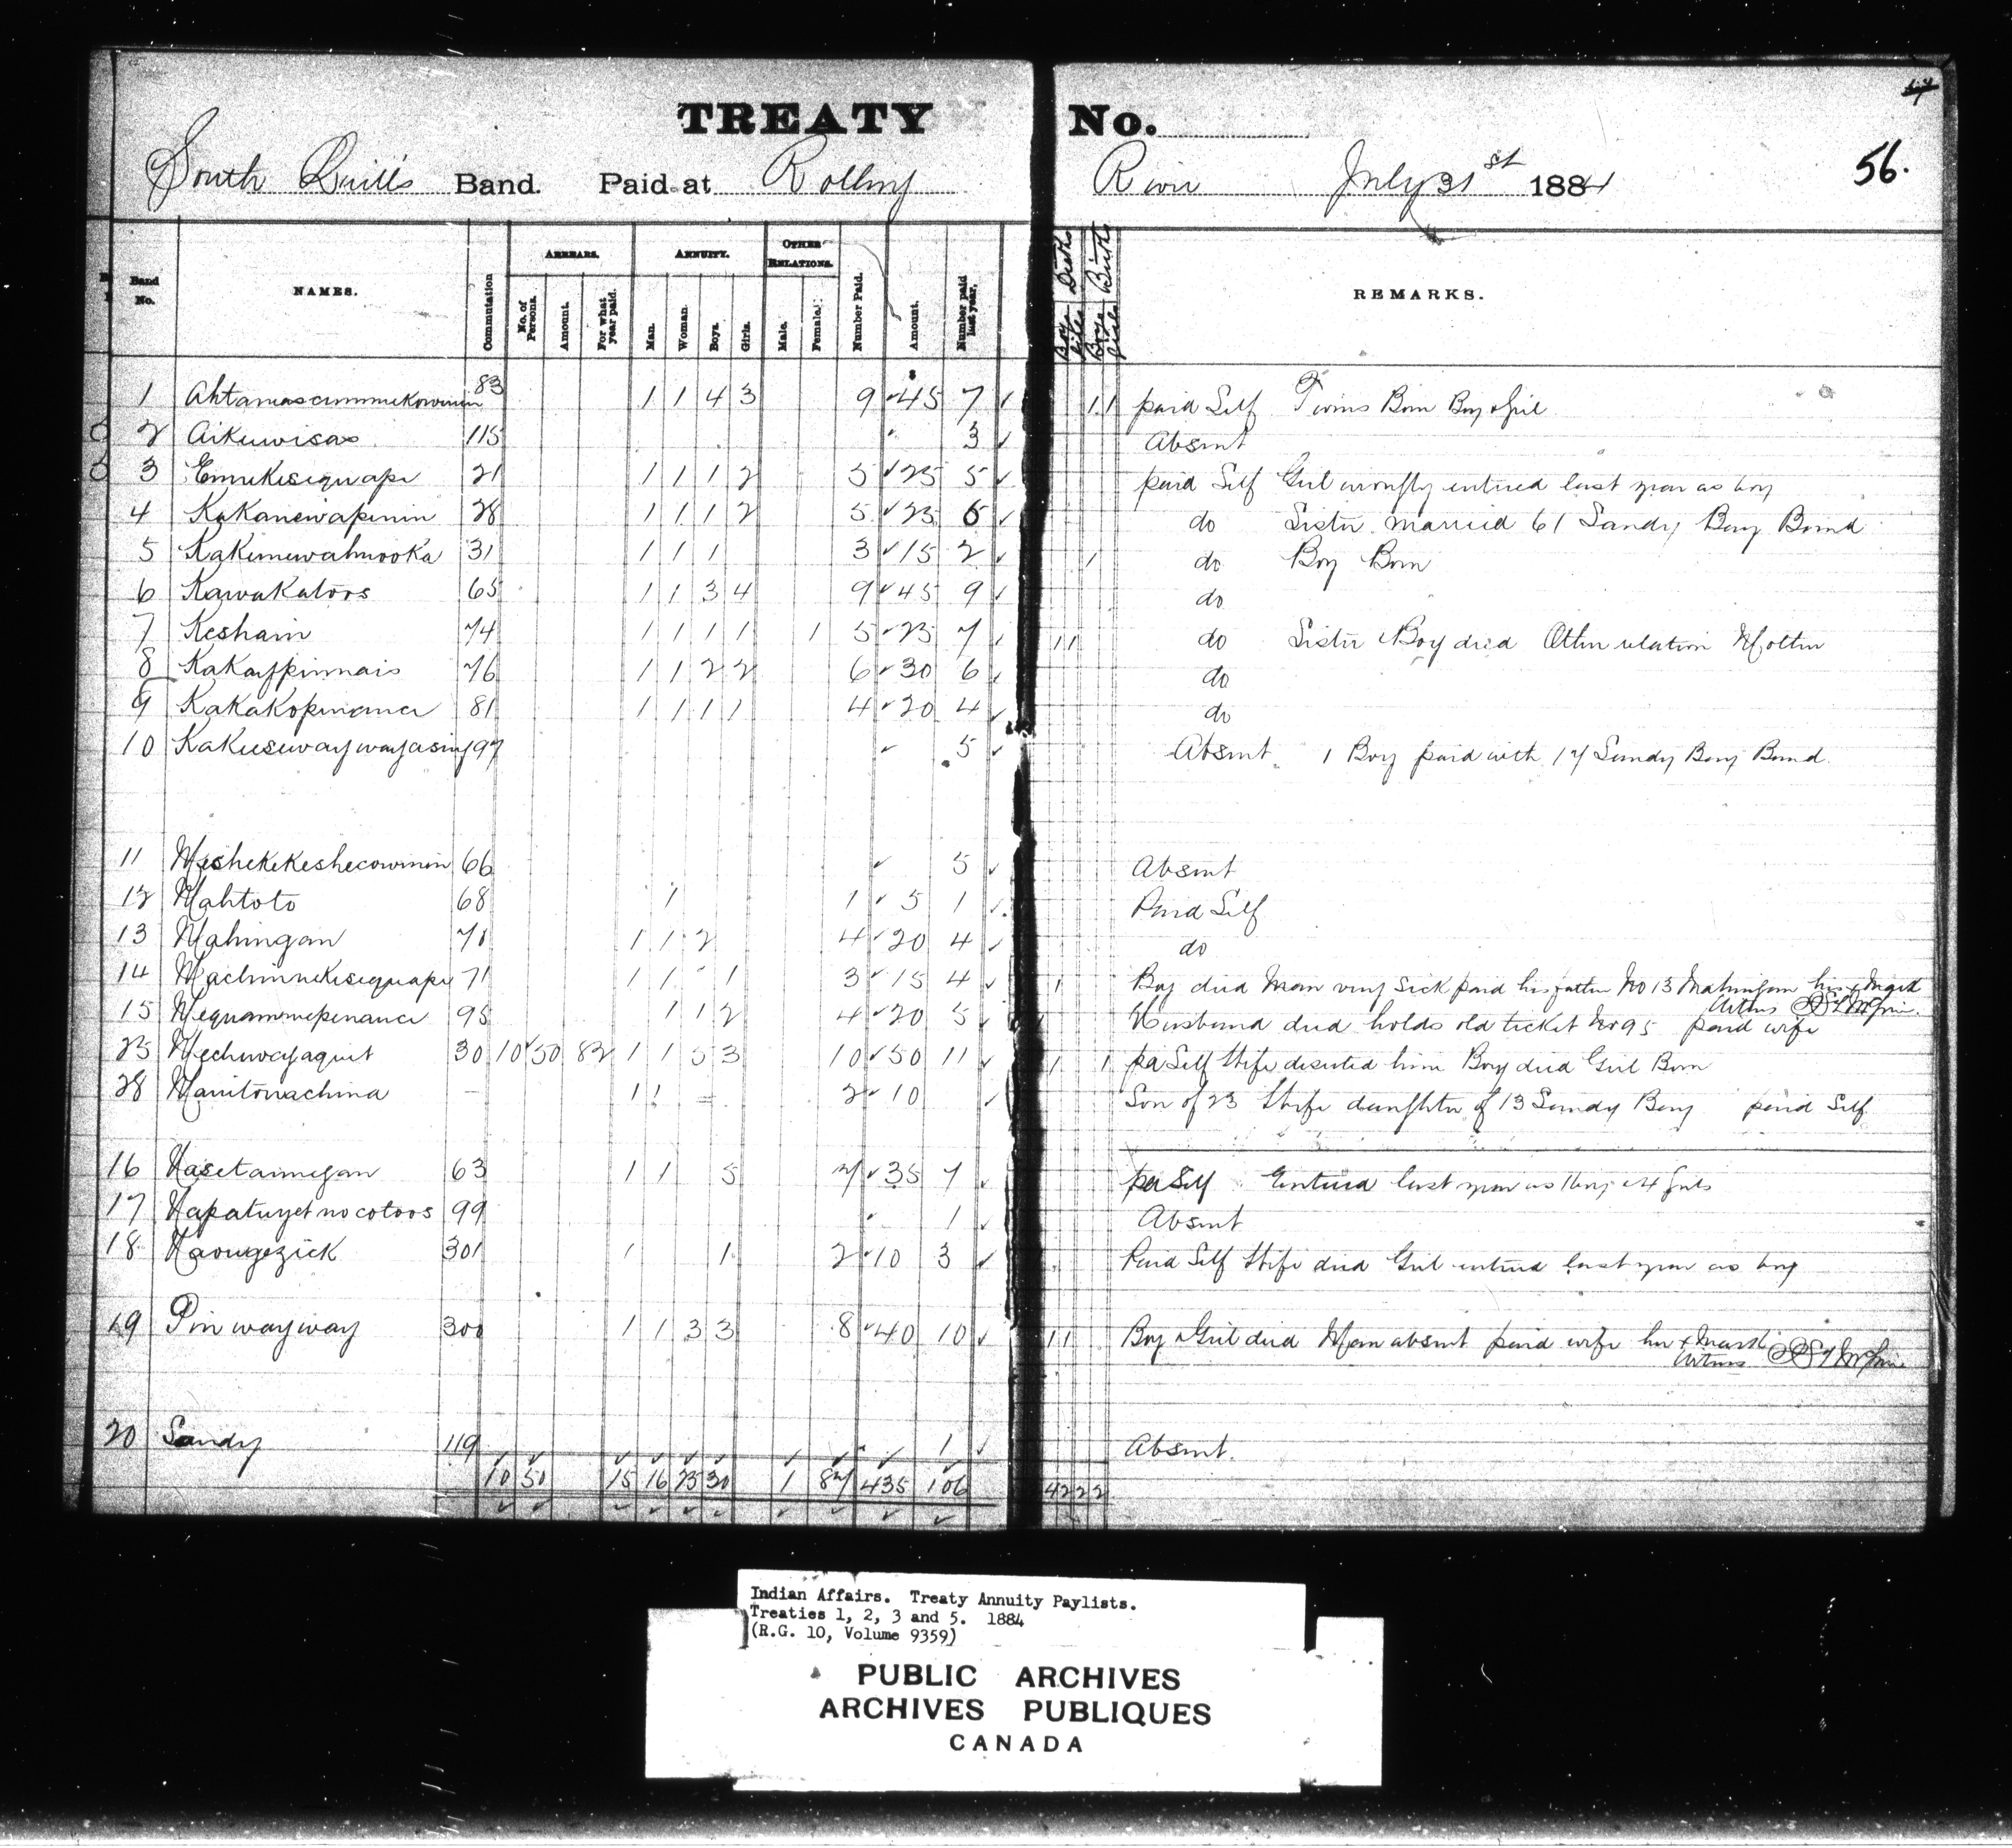 TREATY No.
South Quill's Band. Paid at Rolling River July 31st 1884
56.
Band No. NAMES. Commutation ARREARS. No. of Persons. Amount. For what year paid. ANNUITY. Man. Woman. Boys. Girls. OTHER RELATIONS. Male. Female. Number Paid. Amount. Number paid last year. Deaths Boys Girls Births Boys Girls REMARKS.
1 83 1 1 4 3 9 45 7 1 1 paid Self Twins Born Boy & Girl
2 Aikuwisas 115 3 Absent
3 Emukisequape 21 1 1 1 2 5 25 5 paid Self Girl wrongly entered last year as boy
4 Kakanewapinin 28 1 1 1 2 5 25 6 do Sister married 61 Sandy Bay Band
5 Kakemewahnooka 31 1 1 1 3 15 2 1 do Boy Born
6 Kawakatoos 65 1 1 3 4 9 45 9 do
7 Keshain 74 1 1 1 1 1 5 25 7 1 1 do Sister & Boy died Other relation Mother
8 Kakaypinnais 76 1 1 2 2 6 30 6 do
9 Kakakopinance 81 1 1 1 1 4 20 4 do
10 Kakusewaywayasing 97 5 Absent 1 Boy paid with 17 Sandy Bay Band.
11 Meshekekeshecowinin 66 5 Absent
12 Mahtoto 68 1 1 5 1 Paid Self
13 Mahingan 70 1 1 2 4 20 4 do
14 Machinukisequape 71 1 1 1 3 15 4 1 Boy died Man very Sick paid his father No 13 Mahingan his x Mark
Witness
15 Mequammepenance 95 1 1 2 4 20 5 Husband died holds old ticket No 95 paid wife
23 Mechwayaquit 30 10 50 82 1 1 5 3 10 50 11 1 1 pa Self Wife deserted him Boy died Girl Born
28 Manitowachina – 1 1 = 2 10 Son of 23 Wife daughter of 13 Sandy Bay paid Self
16 Nasetannegan 63 1 1 5 7 35 7 pa Self Entered last year as 1 boy & 4 girls
17 Napatuyetnocotoos 99 1 Absent
18 Naongezick 301 1 1 2 10 3 Paid Self Wife died Girl entered last year as boy
19 Pinwayway 300 1 1 3 3 8 40 10 1 1 Boy & Girl died Man absent paid wife her x Mark
Witness
20 Sandy 119 1 Absent.
10 50 15 16 25 30 1 87 435 106 4 2 2 2
Indian Affairs. Treaty Annuity Paylists.
Treaties 1, 2, 3 and 5. 1884
(R.G. 10, Volume 9359)
PUBLIC ARCHIVES
ARCHIVES PUBLIQUES
CANADA